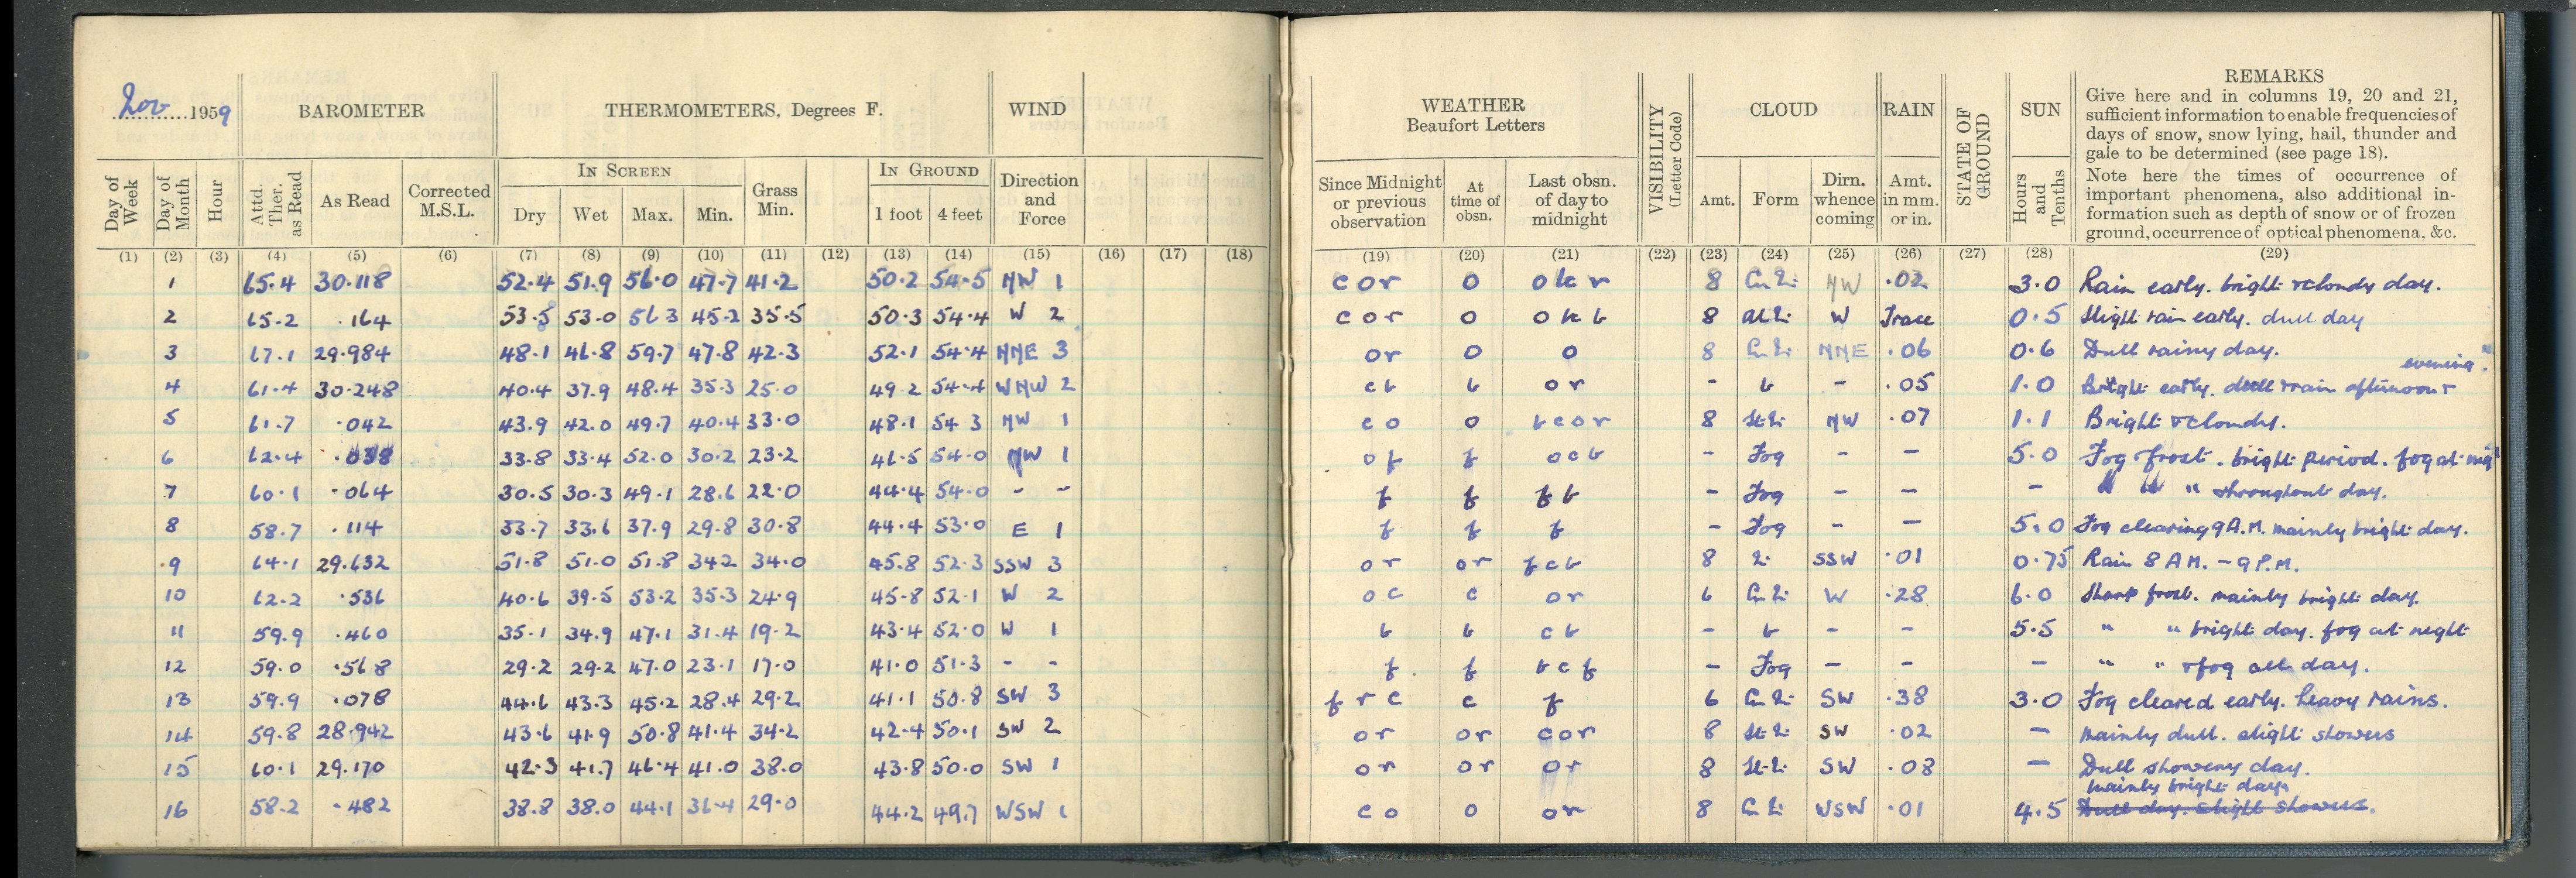 Nov 1959
BAROMETER
THERMOMETERS, Degrees F.
WIND
WEATHER
Beaufort Letters
VISIBILITY
(Letter Code)
CLOUD
RAIN
STATE OF GROUND
SUN
REMARKS
Give here and in columns 19, 20 and 21,
sufficient information to enable frequencies of
days of snow, snow lying, hail, thunder and
gale to be determined (see page 18).
Note here the times of occurrence of
important phenomena, also additional in-
formation such as depth of snow or of frozen
ground, occurrence of optical phenomena, &c.
Day of Week
Day of Month
Hour
Attd. Ther. as Read
As Read
Corrected M.S.L.
IN SCREEN
Dry Wet Max. Min.
Grass Min.
IN GROUND
1 foot 4 feet
Direction and Force
Since Midnight or previous observation
At time of obsn.
Last obsn. of day to midnight
Amt. Form
Dirn. whence coming
Amt. in mm. or in.
Hours and Tenths
(1) (2) (3) (4) (5) (6) (7) (8) (9) (10) (11) (12) (13) (14) (15) (16) (17) (18) (19) (20) (21) (22) (23) (24) (25) (26) (27) (28) (29)
1 65.4 30.118 52.4 51.9 56.0 47.7 41.2 50.2 54.5 NW 1 c o r o o b c r 8 NW .02 3.0 Rain early. bright & cloudy day.
2 65.2 .164 53.5 53.0 56 3 45.2 35.5 50.3 54.4 W 2 c o r o o b c 8 W Trace 0.5 Slight rain early. dull day
3 67.1 29.984 48.1 46.8 59.7 47.8 42.3 52.1 54.4 NNE 3 o r o o 8 NNE .06 0.6 Dull rainy day.
4 61.4 30.248 40.4 37.9 48.4 35.3 25.0 49.2 54.4 WNW 2 c b b o r - b - .05 1.0 Bright early. dull & rain afternoon & evening.
5 61.7 .042 43.9 42.0 49.7 40.4 33.0 48.1 54 3 NW 1 c o o b c o r 8 NW .07 1.1 Bright & cloudy.
6 62.4 .038 33.8 33.4 52.0 30.2 23.2 46.5 54.0 NW 1 o f f o c b - Fog - - 5.0 Fog & frost. bright period. fog at
7 60.1 .064 30.5 30.3 49.1 28.6 22.0 44.4 54.0 - - f f f b - Fog - - - " throughout day.
8 58.7 .114 33.7 33.6 37.9 29.8 30.8 44.4 53.0 E 1 f f f - Fog - - 5.0 Fog clearing 9 A.M. mainly bright day.
9 64.1 29.632 51.8 51.0 51.8 34.2 34.0 45.8 52.3 SSW 3 o r o r f c b 8 SSW .01 0.75 Rain 8 A M. - 9 P.M.
10 62.2 .536 40.6 39.5 53.2 35.3 24.9 45.8 52.1 W 2 o c c o r 6 W .28 6.0 Sharp frost. mainly bright day.
11 59.9 .460 35.1 34.9 47.1 31.4 19.2 43.4 52.0 W 1 b b c b - b - - 5.5 " " bright day. fog at night
12 59.0 .568 29.2 29.2 47.0 23.1 17.0 41.0 51.3 - - f f b c f - Fog - - - " " & fog all day.
13 59.9 .078 44.6 43.3 45.2 28.4 29.2 41.1 50.8 SW 3 f r c c f 6 SW .38 3.0 Fog cleared early. heavy rains.
14 59.8 28.942 43.6 41.9 50.8 41.4 34.2 42.4 50.1 SW 2 o r o r c o r 8 SW .02 - mainly dull. slight showers
15 60.1 29.170 42.3 41.7 46.4 41.0 38.0 43.8 50.0 SW 1 o r o r o r 8 SW .03 - Dull showery day.
mainly bright day.
16 58.2 .482 38.8 38.0 44.1 36.4 29.0 44.2 49.7 WSW 1 c o o o r 8 WSW .01 4.5 Dull day. slight showers.